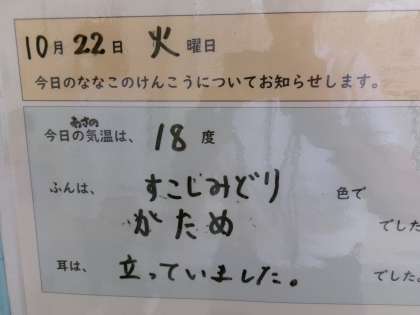 10月22日 火曜日
今日のななこのけんこうについてお知らせします。
あさの
今日の気温は、 18 度
ふんは、 すこしみどり 色で
がため でした
耳は、 立っていました。 でした。